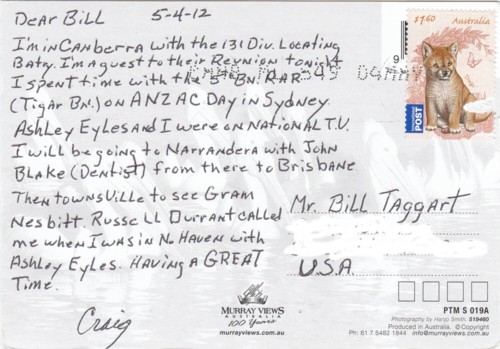 Dear Bill 5-4-12
I'm in Canberra with the 131 Div. Locating
Baty. I'm a guest to their Reunion tonight
I spent time with the 5th BN. RAR
(Tigar BN.) on ANZAC Day in Sydney.
Ashley Eyles and I were on National T.V.
I will be going to Narrandera with John
Blake (Dentist) from there to Brisbane
Then Townsville to see Gram
Nesbitt. Russell Durrant called
me when I was in N. Haven with
Ashley Eyles. Having a GREAT
Time.
Craig
$1.60 Australia
INTERNATIONAL POST
Mr. Bill Taggart
U.S.A.
MURRAY VIEWS
AUSTRALIA
100 Years
murrayviews.com.au
PTM S 019A
Photography by Hanjo Smith, S19460
Produced in Australia. © Copyright
Ph: 61 7 5482 1844 info@murrayviews.com.au